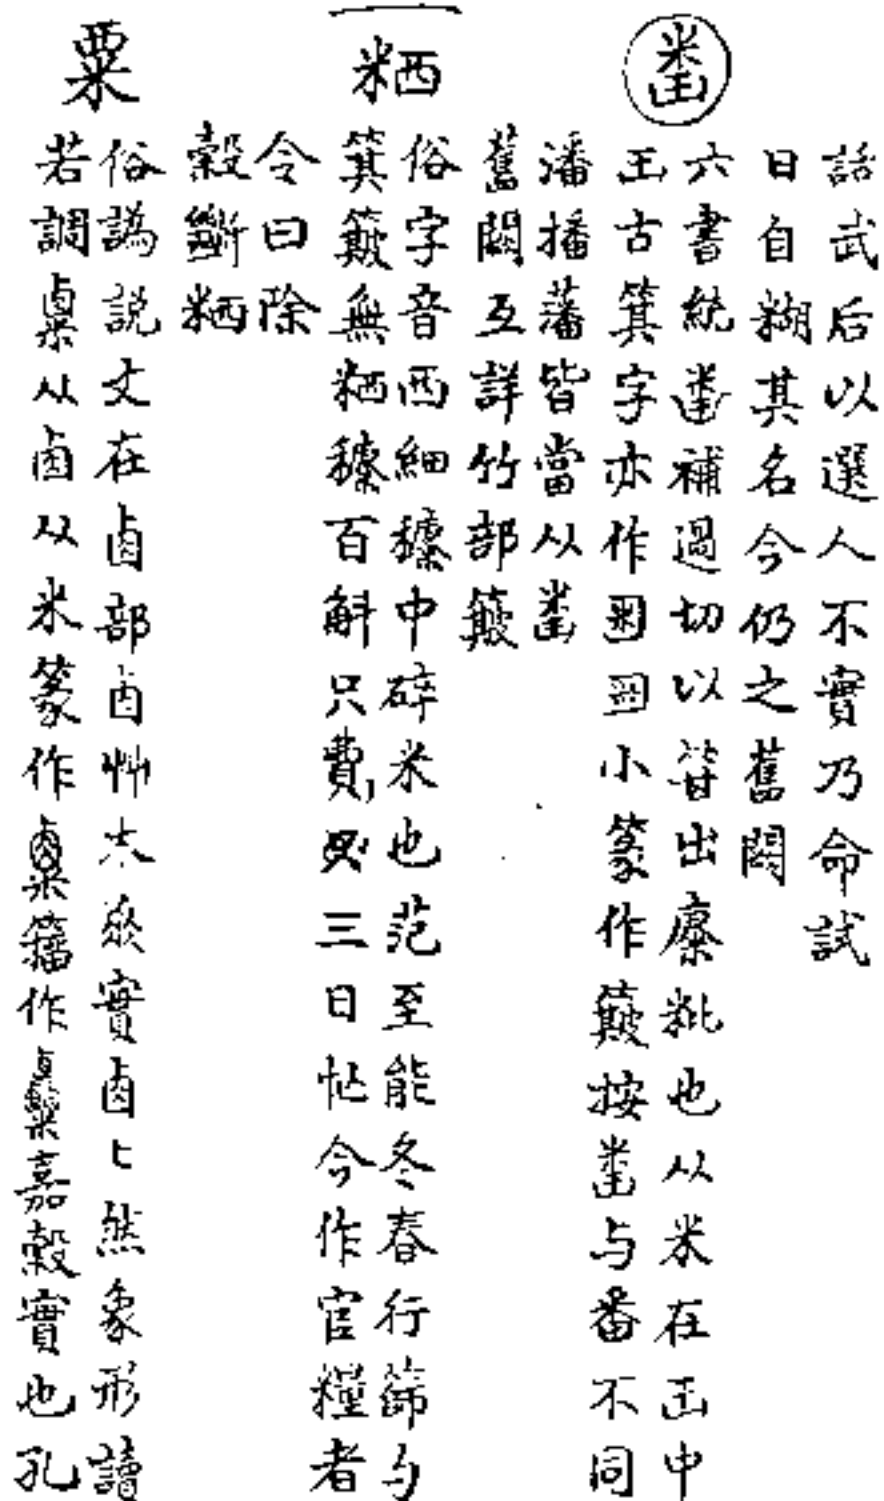 話武后以選人不實乃命試
日自糊其名今仍之舊闕
𡌬
六書統𡌬補過切以箕出糜粃也从米在𠙽中
古箕字亦作小篆作簸按与番不同
潘播藩皆當从
舊闕互詳竹部簸
粞
俗字音西細𥽦中碎米也范至能冬舂行篩勻
箕簸無粞𥽦百斛只費三日忙今作官糧者
令曰除
穀斷粞
粟
俗譌説文在𠧪部𠧪艸木𠂹實𠧪〻然象形讀
若調𥻆从𠧪从米篆作籀作嘉穀實也孔